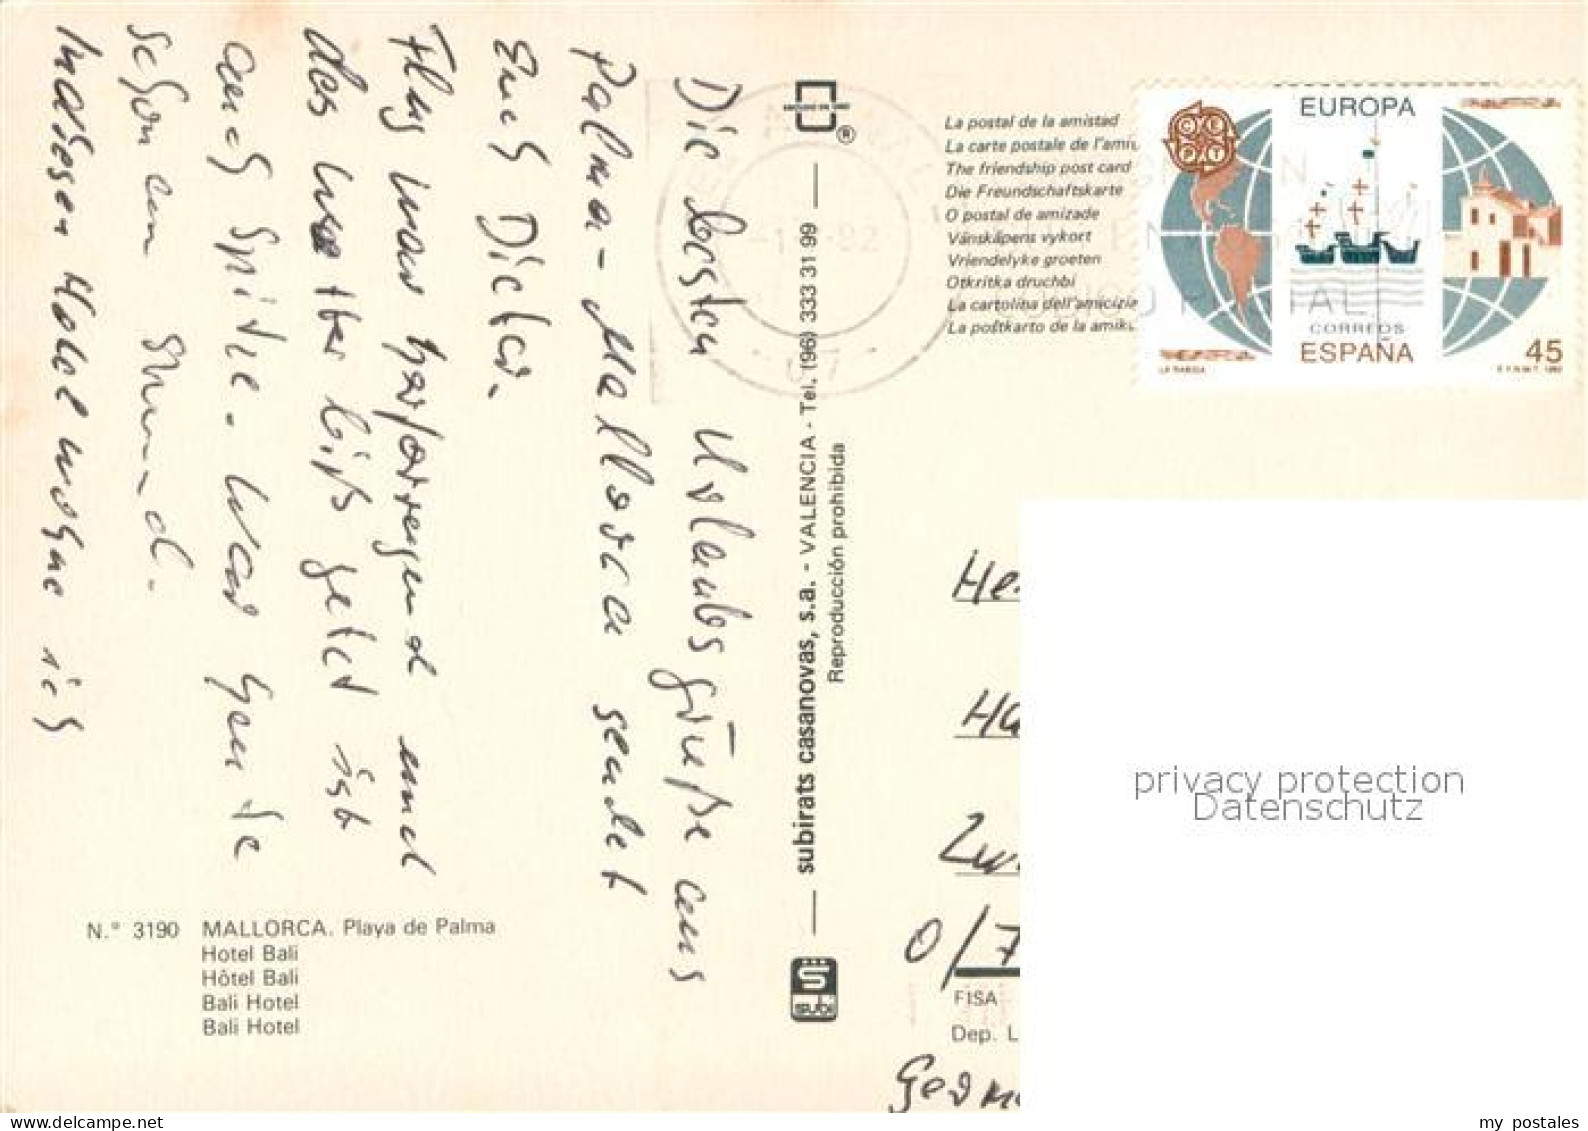 Die besten Urlaubsgrüße aus
Palma-Mallorca sendet
Euch Dieter.
Flug war hervorragend und
das Wetter bis jetzt ist
auch Spitze. War heute
schon am Strand.
In diesem Hotel wohne ich
N.° 3190 MALLORCA. Playa de Palma
Hotel Bali
Hôtel Bali
Bali Hotel
Bali Hotel
subirats casanovas, s.a. - VALENCIA - Tel. (96) 333 31 99
Reproducción prohibida
®
La postal de la amistad
La carte postale de l'ami
The friendship post card
Die Freundschaftskarte
O postal de amizade
Vänskåpens vykort
Vriendelyke groeten
Otkritka druchbi
La cartolina dell'amicizia
La poŝtkarto de la amik
EUROPA
CEPT
CORREOS
ESPAÑA
45
LA RABIDA
F.N.M.T. 1992
07
He
Ha
Zw
0/7
FISA
Dep. L
Germ
privacy protection
Datenschutz
my postales